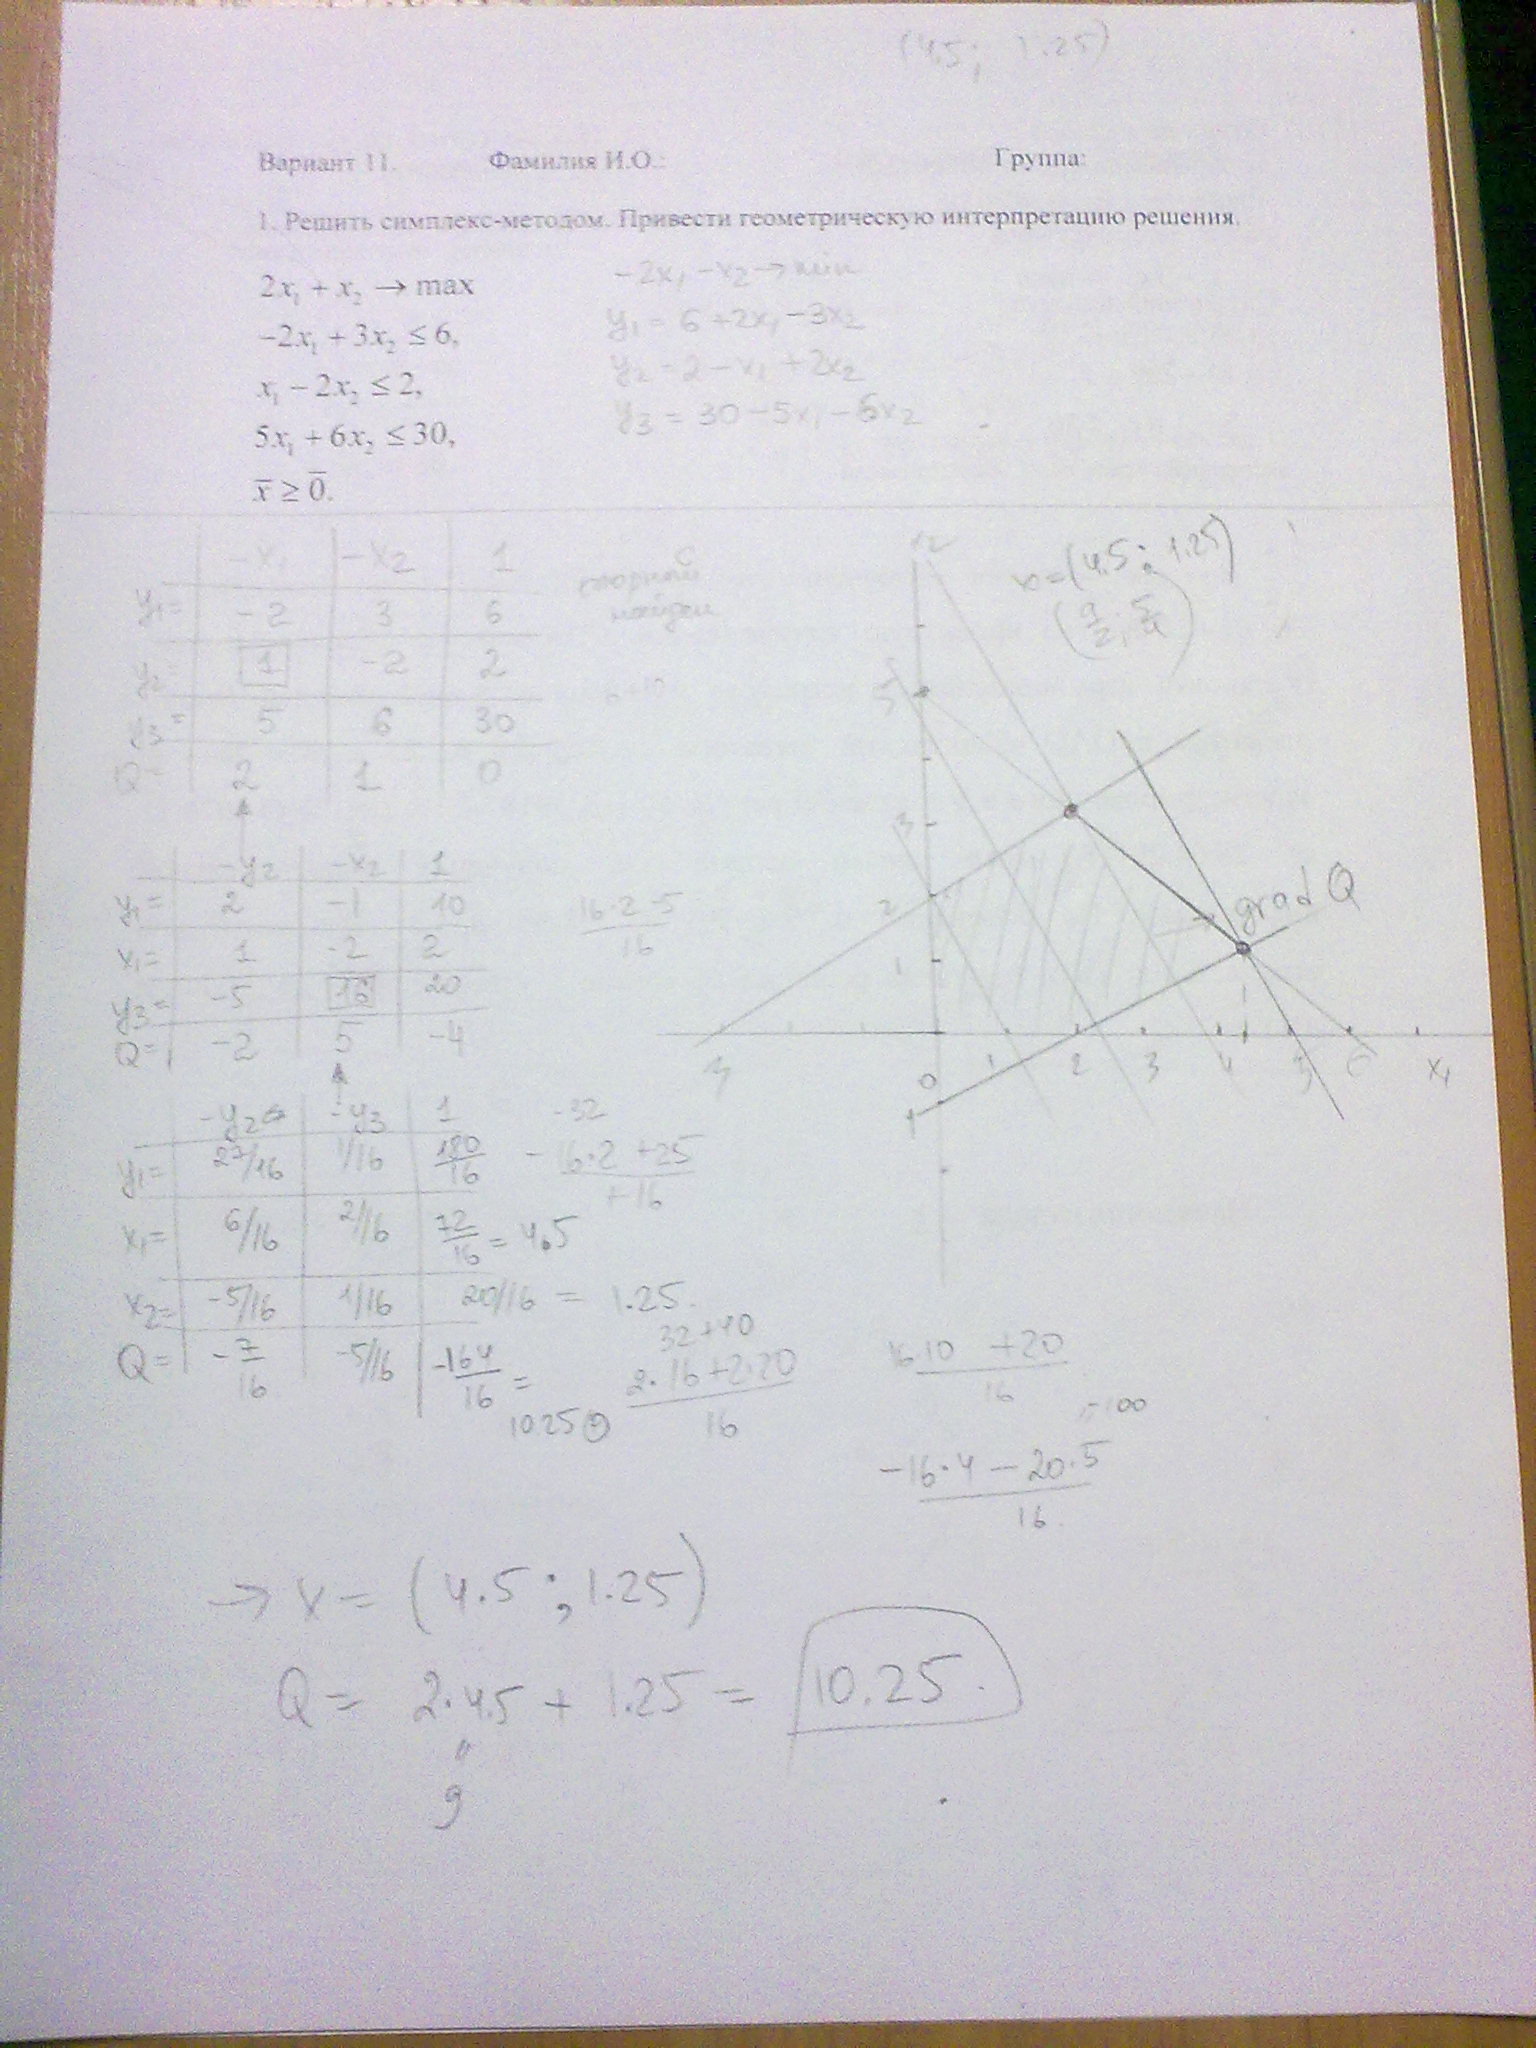 (4.5; 1.25)
Вариант 11. Фамилия И.О.: Группа:
1. Решить симплекс-методом. Привести геометрическую интерпретацию решения.
2x₁ + x₂ → max
-2x₁ + 3x₂ ≤ 6,
x₁ - 2x₂ ≤ 2,
5x₁ + 6x₂ ≤ 30,
x̅ ≥ 0̅.
-2x₁ -x₂ → min
y₁ = 6 +2x₁ -3x₂
y₂ = 2 - x₁ + 2x₂
y₃ = 30 -5x₁ -6x₂
-x₁ -x₂ 1
y₁= -2 3 6
y₂= 1 -2 2
y₃= 5 6 30
Q= 2 1 0
-y₂ -x₂ 1
y₁= 2 -1 10
x₁= 1 -2 2
y₃= -5 16 20
Q= -2 5 -4
16·2-5
16
-y₂ -y₃ 1
y₁= 27/16 1/16 180/16
x₁= 6/16 2/16 72/16 = 4.5
x₂= -5/16 1/16 20/16 = 1.25.
Q= -7/16 -5/16 -164/16 =
10.25
-32
-16·2 +25
+16
32+40
2·16+2·20
16
16·10 +20
16
-100
-16·4 - 20·5
16
x=(4.5; 1.25)
(9/2; 5/4)
5
3
2
1
grad Q
3 0 1 2 3 4 5 6 x₁
→ x = (4.5; 1.25)
Q = 2·4.5 + 1.25 = 10.25.
"
9